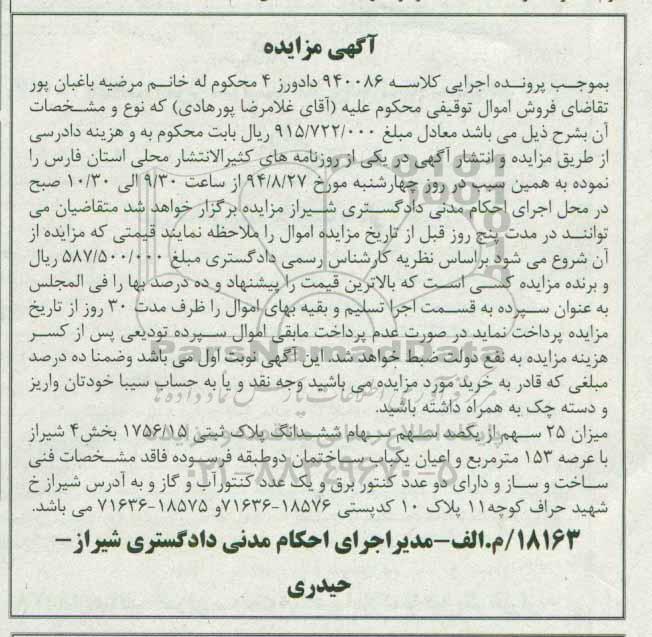 آگهی مزایده
بموجب پرونده اجرایی کلاسه ۹۴۰۰۸۶ دادورز ۴ محکوم له خانم مرضیه باغبان پور
تقاضای فروش اموال توقیفی محکوم علیه (آقای غلامرضا پورهادی) که نوع و مشخصات
آن بشرح ذیل می باشد معادل مبلغ ۹۱۵/۷۲۲/۰۰۰ ریال بابت محکوم به و هزینه دادرسی
از طریق مزایده و انتشار آگهی در یکی از روزنامه های کثیرالانتشار محلی استان فارس را
نموده به همین سبب در روز چهارشنبه مورخ ۹۴/۸/۲۷ از ساعت ۹/۳۰ الی ۱۰/۳۰ صبح
در محل اجرای احکام مدنی دادگستری شیراز مزایده برگزار خواهد شد متقاضیان می
توانند در مدت پنج روز قبل از تاریخ مزایده اموال را ملاحظه نمایند قیمتی که مزایده از
آن شروع می شود براساس نظریه کارشناس رسمی دادگستری مبلغ ۵۸۷/۵۰۰/۰۰۰ ریال
و برنده مزایده کسی است که بالاترین قیمت را پیشنهاد و ده درصد بها را فی المجلس
به عنوان سپرده به قسمت اجرا تسلیم و بقیه بهای اموال را ظرف مدت ۳۰ روز از تاریخ
مزایده پرداخت نماید در صورت عدم پرداخت مابقی اموال سپرده تودیعی پس از کسر
هزینه مزایده به نفع دولت ضبط خواهد شد. این آگهی نوبت اول می باشد وضمنا ده درصد
مبلغی که قادر به خرید مورد مزایده می باشید وجه نقد و یا به حساب سیبا خودتان واریز
و دسته چک به همراه داشته باشید.
میزان ۲۵ سهم از یکصد سهم سهام ششدانگ پلاک ثبتی ۱۷۵۶/۱۵ بخش۴ شیراز
با عرصه ۱۵۳ مترمربع و اعیان یکباب ساختمان دوطبقه فرسوده فاقد مشخصات فنی
ساخت و ساز و دارای دو عدد کنتور برق و یک عدد کنتورآب و گاز و به آدرس شیراز خ
شهید حراف کوچه۱۱ پلاک ۱۰ کدپستی ۱۸۵۷۶-۷۱۶۳۶و ۱۸۵۷۵-۷۱۶۳۶ می باشد.
۱۸۱۶۳/م.الف-مدیراجرای احکام مدنی دادگستری شیراز-
حیدری
ParsNamadData
پایگاه اطلاع رسانی
۰۲۱-۸۸۳۴۹۶۷۰-۵